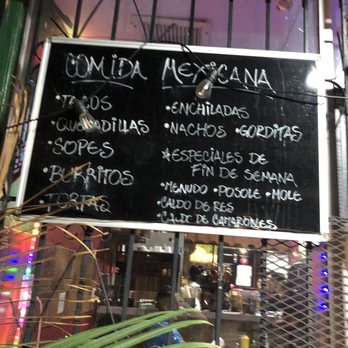 COMIDA MEXICANA
•TACOS
•QUESADILLAS
•SOPES
•BURRITOS
TORTAS
•ENCHILADAS
•NACHOS •GORDITAS
*ESPECIALES DE
FIN DE SEMANA
•MENUDO •POSOLE •MOLE
CALDO DE RES
CALDO DE CAMARONES